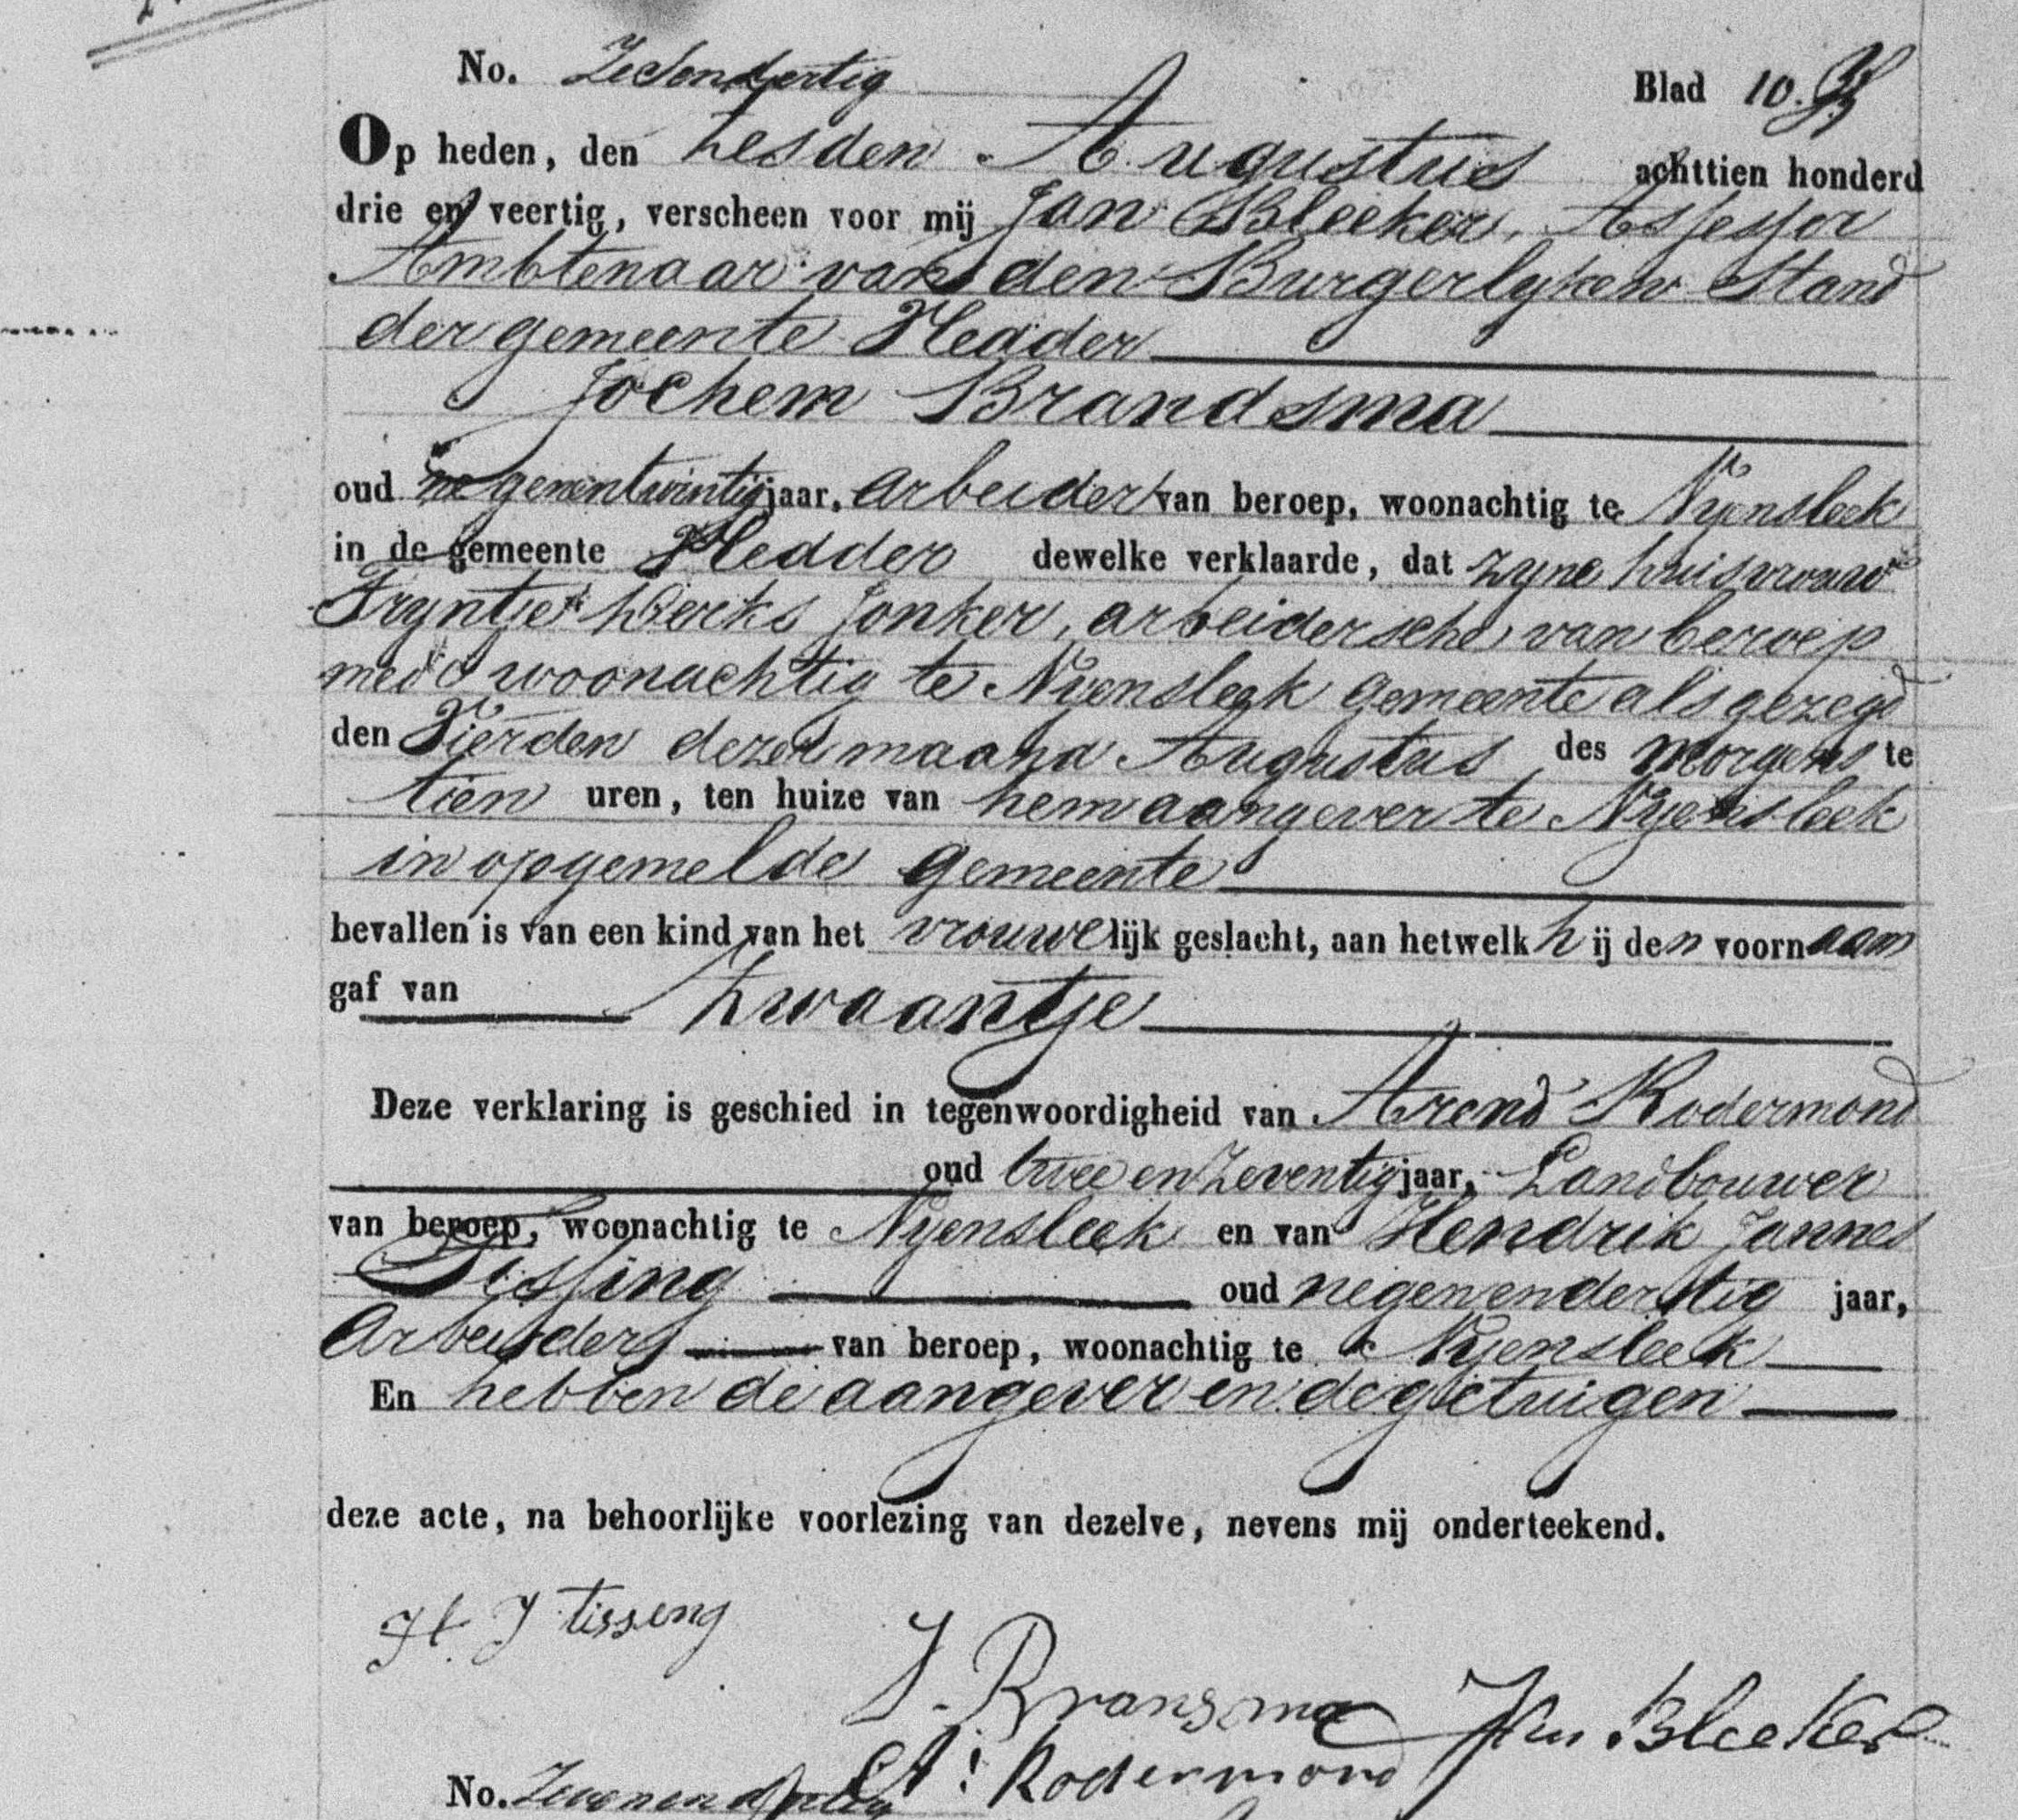 No. Zesendertig Blad 10.
Op heden, den Zesden Augustus achttien honderd
drie en veertig, verscheen voor mij Jan Bleeker, Assessor
Ambtenaar van den Burgerlyken Stand
der gemeente Vledder
Jochem Brandsma
oud negenentwintig jaar, arbeider van beroep, woonachtig te Nyensleek
in de gemeente Vledder dewelke verklaarde, dat zyne huisvrouw
Tryntje Derks Jonker, arbeidersche van beroep
mede woonachtig te Nyensleek gemeente als gezegd
den Vierden dezer maand Augustus des morgens te
tien uren, ten huize van hem aangever te Nyensleek
in opgemelde gemeente
bevallen is van een kind van het vrouwelijk geslacht, aan hetwelk hij den voornaam
gaf van Zwaantje
Deze verklaring is geschied in tegenwoordigheid van Arend Rodermond
oud twee en zeventig jaar, Landbouwer
van beroep, woonachtig te Nyensleek en van Hendrik Jannes
Tissing oud negenendertig jaar,
Arbeider van beroep, woonachtig te Nyensleek
En hebben de aangever en de getuigen
deze acte, na behoorlijke voorlezing van dezelve, nevens mij onderteekend.
H. J tisseng
J. Bransma
Jan Bleeker
A. Rodermond
No. Zevenendertig